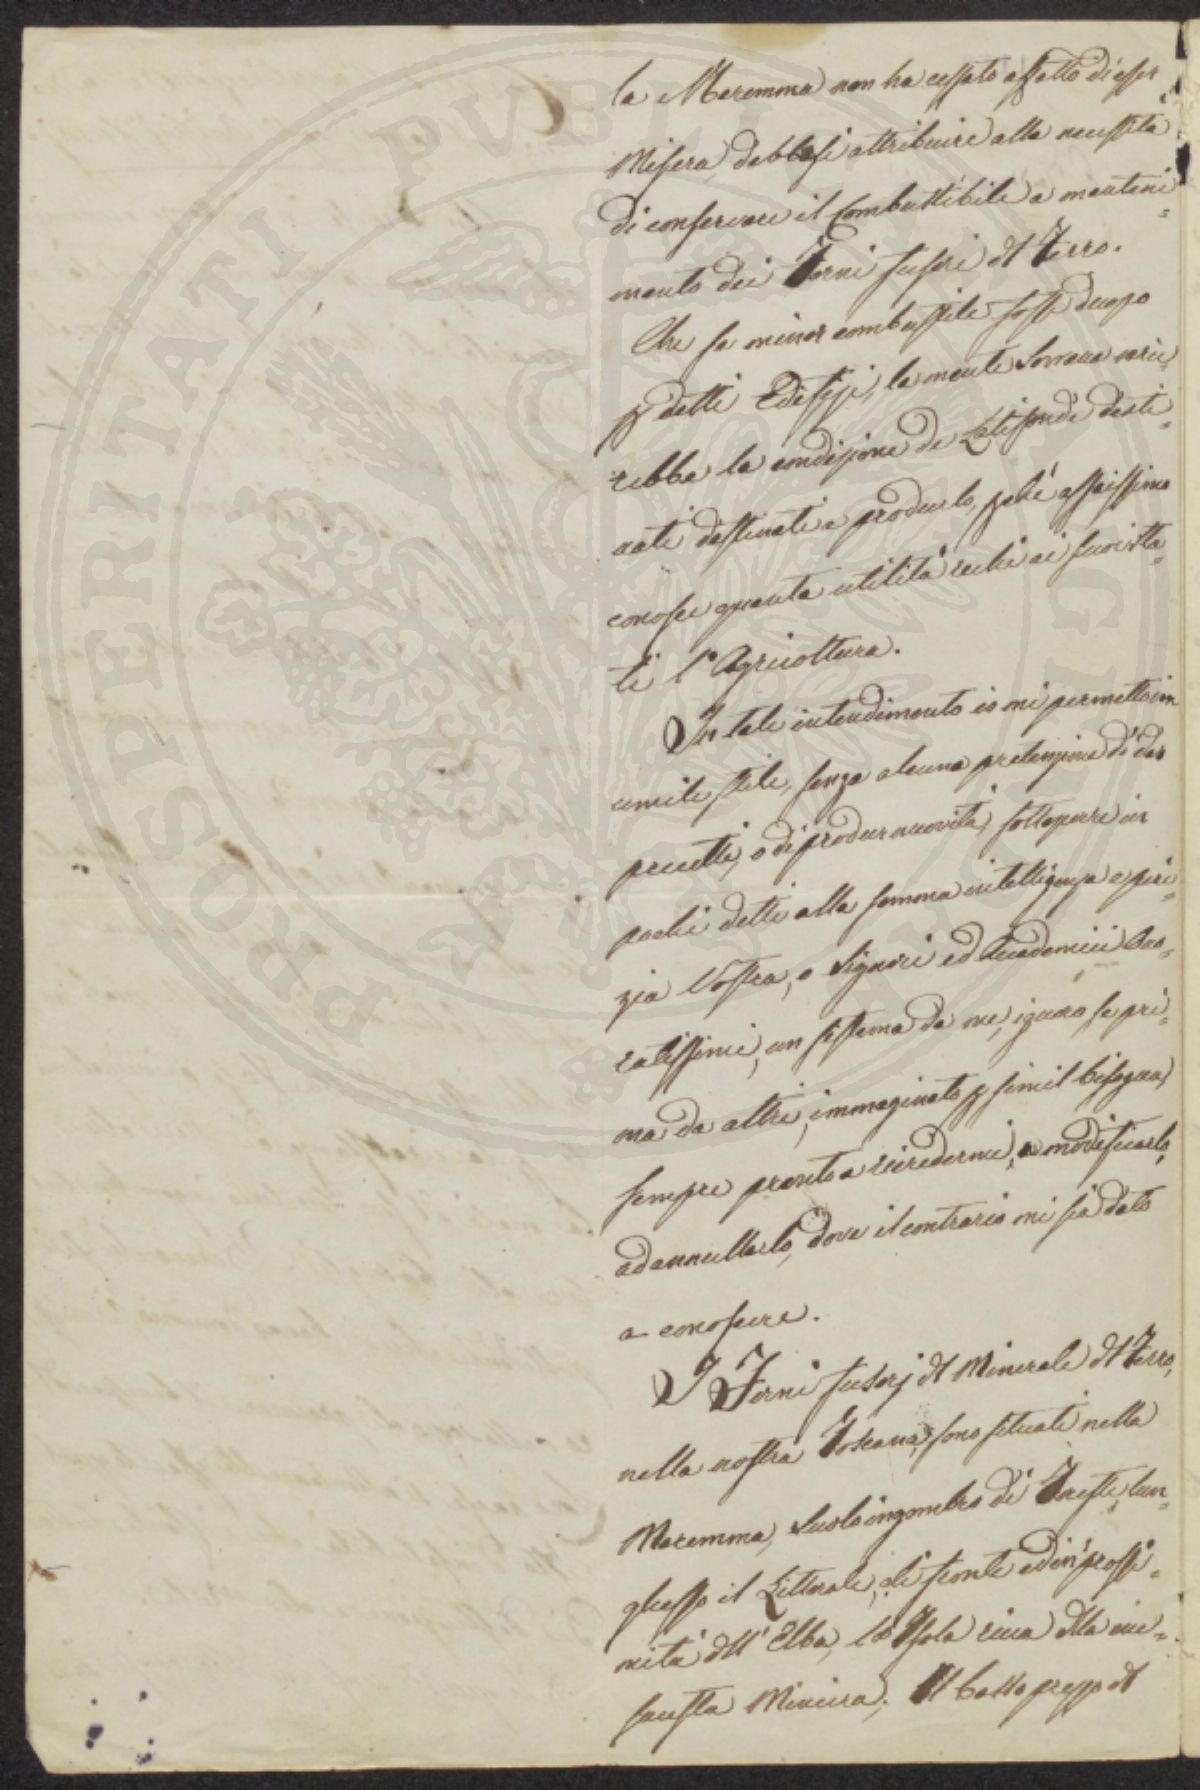 la Maremma non ha cessato affatto di esser
misera, debbesi attribuire alla necessità
di conservare il Combustibile a manteni=
mento dei Forni fusori del Ferro.
Che se minor combustibile fosse duopo
p detti Edifizj, la mente Sovrana varie=
rebbe la condizione de Latifondi desti=
nati destinati a produrlo, pché assaissimo
conosce quanta utilità rechi ai suoi Sta=
ti l'Agricoltura.
In tale intendimento io mi permetto in
umile stile, senza alcuna pretenzione di dar
precetti, o di produr novità, sottoporre in
pochi detti alla somma intelligenza e peri=
zia Vostra, o Signori ed Accademici Ono=
ratissimi, un sistema da me, ignaro se pri=
ma da altri, immaginato p simil bisogna,
sempre pronto a ricredermi, a modificarlo,
ad annullarlo, dove il contrario mi sia dato
a conoscere.
I Forni fusorj del Minerale del Ferro,
nella nostra Toscana, sono situati nella
Maremma, Suolo ingombro di Foreste, lun=
ghesso il Littorale, di fronte ed in prossi=
mità dell' Elba, la Isola ricca della ine=
sausta Miniera. Il basso prezzo del